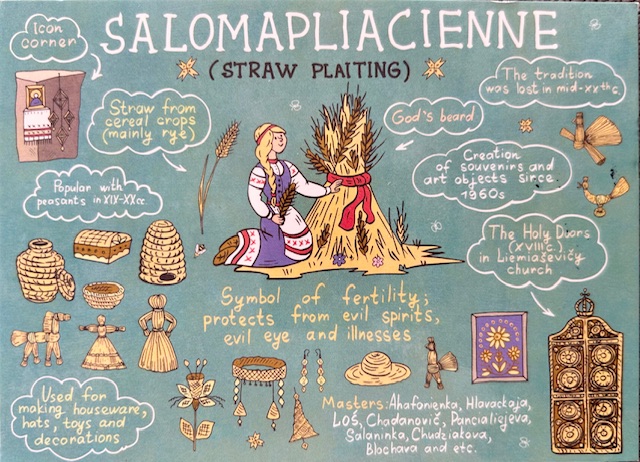 SALOMAPLIACIENNE
(STRAW PLAITING)
icon
corner
Straw from
cereal crops
(mainly rye)
Popular with
peasants in XIX-XXcc.
God's beard
The tradition
was lost in mid-XXthc.
Creation
of souvenirs and
art objects since
1960s
The Holy Duors
(XVIIIc.)
in Liemiaševičy
church
Symbol of fertility;
protects from evil spirits,
evil eye and illnesses
Used for
making houseware,
hats, toys and
decorations
Masters: Ahafonienka, Hlavackaja,
Loś, Chadanovič, Pancialiejeva,
Salaninka, Chudziatova,
Blochava and etc.